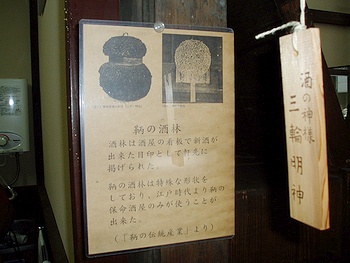 鞆の酒林
酒林は酒屋の看板で新酒が
出来た目印として軒先に
掲げられた。
鞆の酒林は特殊な形状を
しており、江戸時代より鞆の
保命酒屋のみが使うことが
出来た。
(「鞆の伝統産業」より)
酒の神様
三輪明神